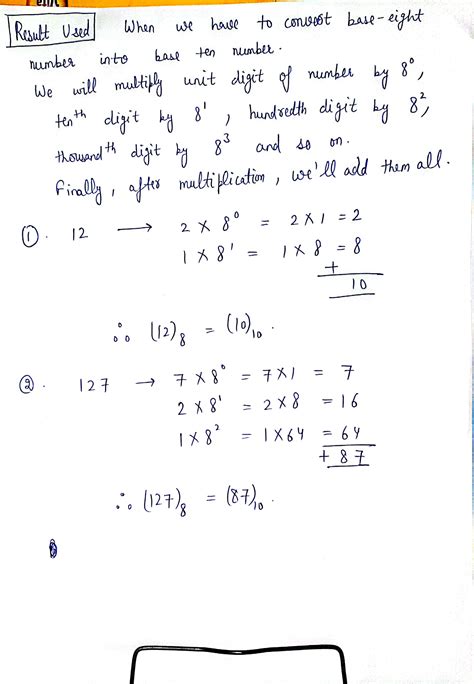 Result Used When we have to convert base-eight
number into base ten number.
We will multiply unit digit of number by 8⁰,
tenᵗʰ digit by 8¹, hundredth digit by 8²,
thousandᵗʰ digit by 8³ and so on.
Finally, after multiplication, we'll add them all.
①. 12 → 2 × 8⁰ = 2 × 1 = 2
1 × 8¹ = 1 × 8 = 8
+
10
∴ (12)₈ = (10)₁₀.
②. 127 → 7 × 8⁰ = 7 × 1 = 7
2 × 8¹ = 2 × 8 = 16
1 × 8² = 1 × 64 = 64
+ 87
∴ (127)₈ = (87)₁₀.